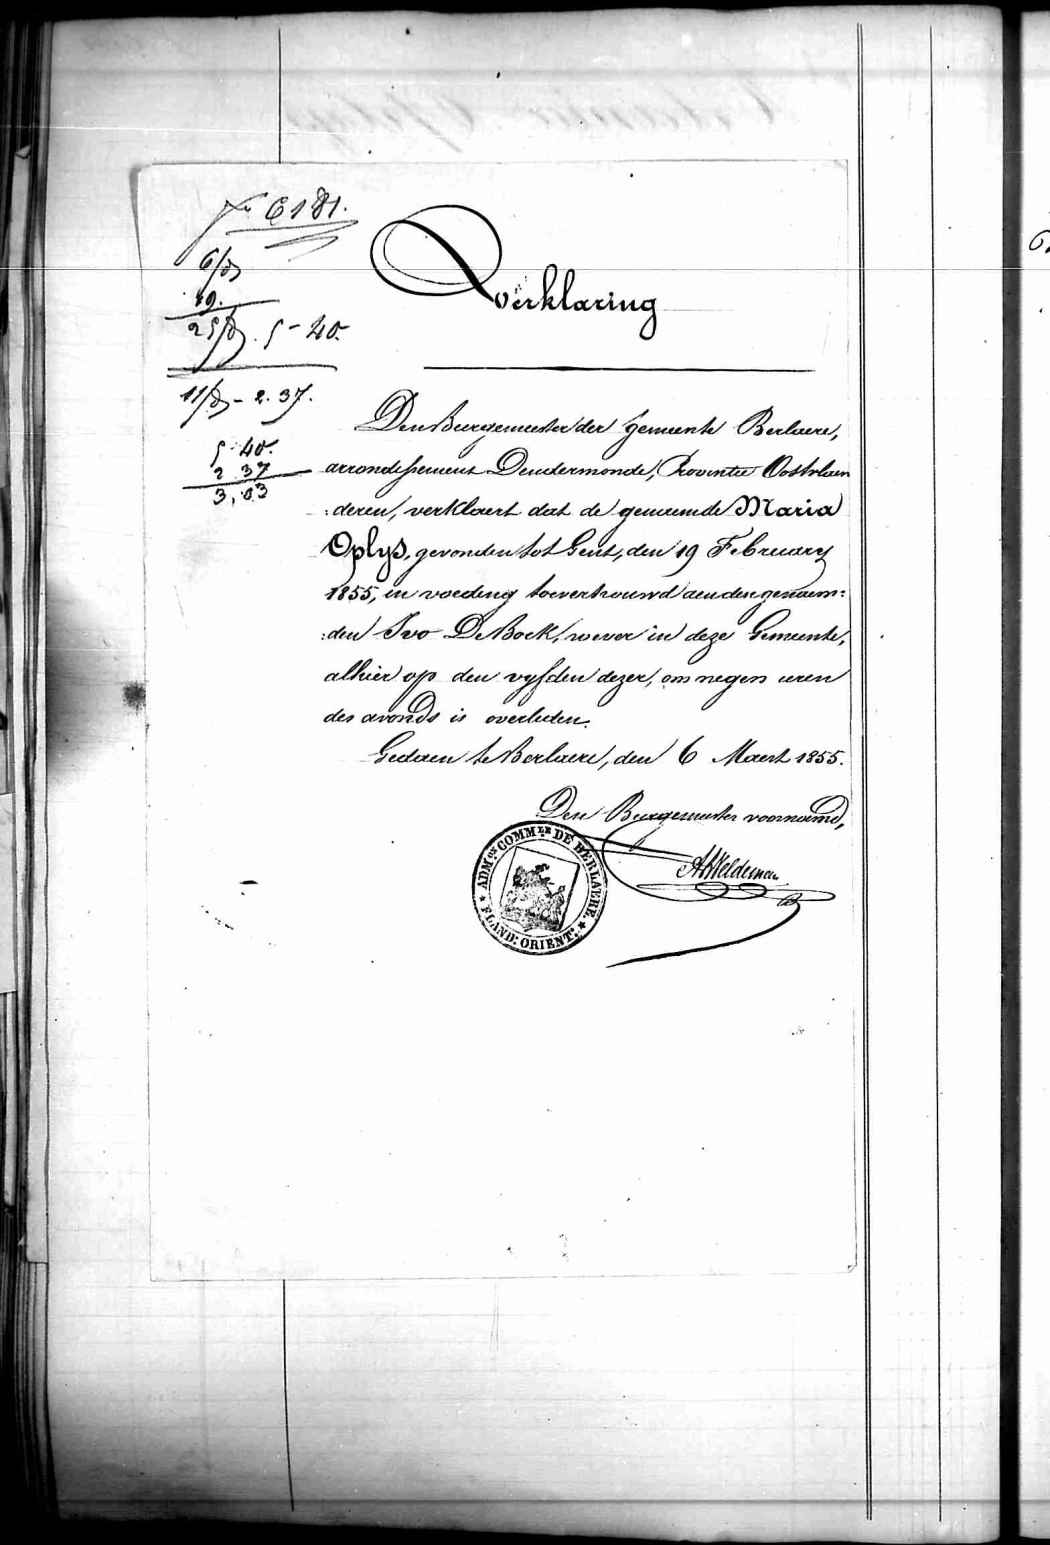 6181.
6/
19.
25/ 5-40.
11/ - 2.37.
5.40.
2 37
3,03
Verklaring
Den Burgemeester der Gemeente Berlaere,
arrondissement Dendermonde, Provintie Oostvlaen
:deren, verklaert dat de genaemde Maria
Oplys, gevonden tot Gent, den 19 February
1855, in voeding toevertrouwd aen den genaem:
:den Ivo De Bock, wever in deze Gemeente,
alhier op den vyfden dezer, om negen uren
des avonds is overleden.
Gedaen te Berlaere, den 6 Maert 1855.
Den Burgemeester voornoemd,
ADMON COMMLE DE BERLAERE.
FLAND: ORIENT: